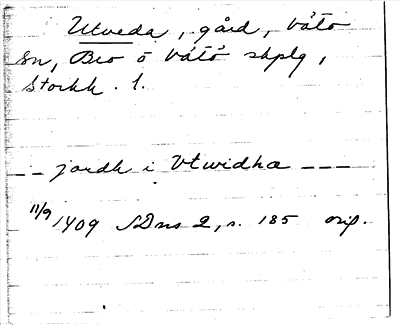 Utveda, gård, Vätö
sn, Bro o Vätö skplg,
Stockh. l.
-- jordh i Vtwidha ---
11/9 1409 SDns 2, s. 185 orig.